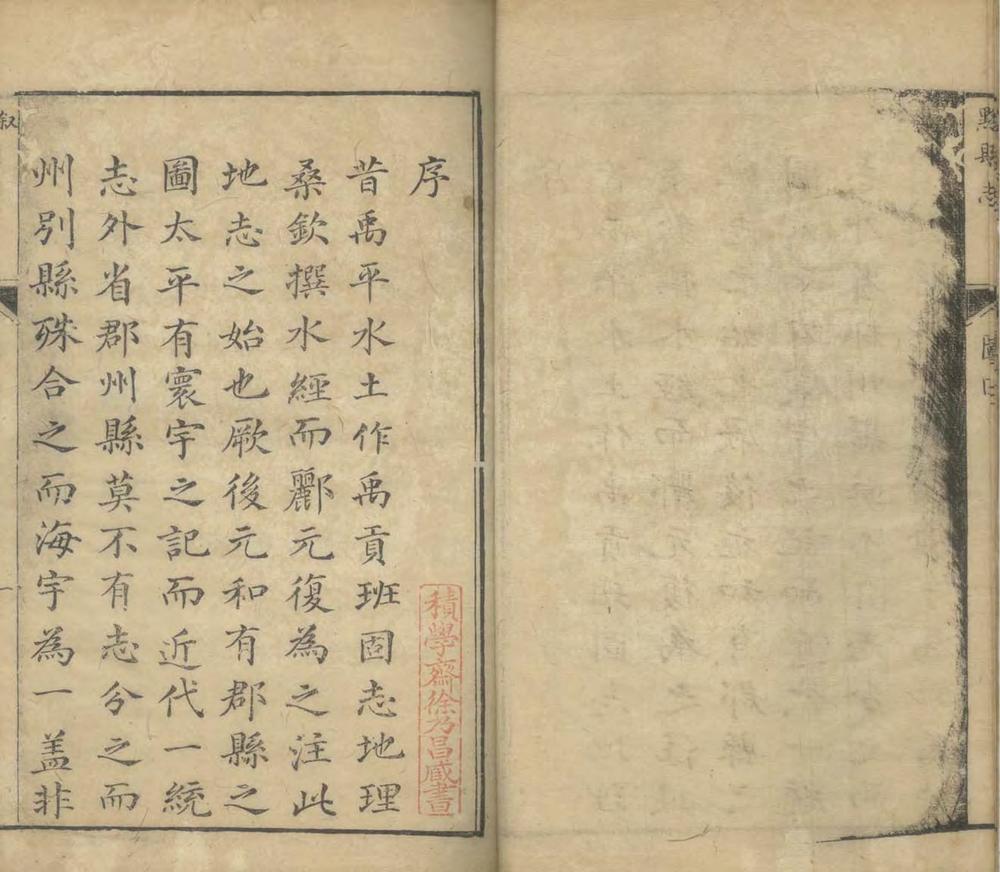 黟縣志
圖
序
昔禹平水土作禹貢班固志地理
桑欽撰水經而酈元復為之注此
地志之始也厥後元和有郡縣之
圖太平有寰宇之記而近代一統
志外省郡州縣莫不有志分之而
州別縣殊合之而海宇為一盖非
積學齋徐乃昌藏書
叙
一